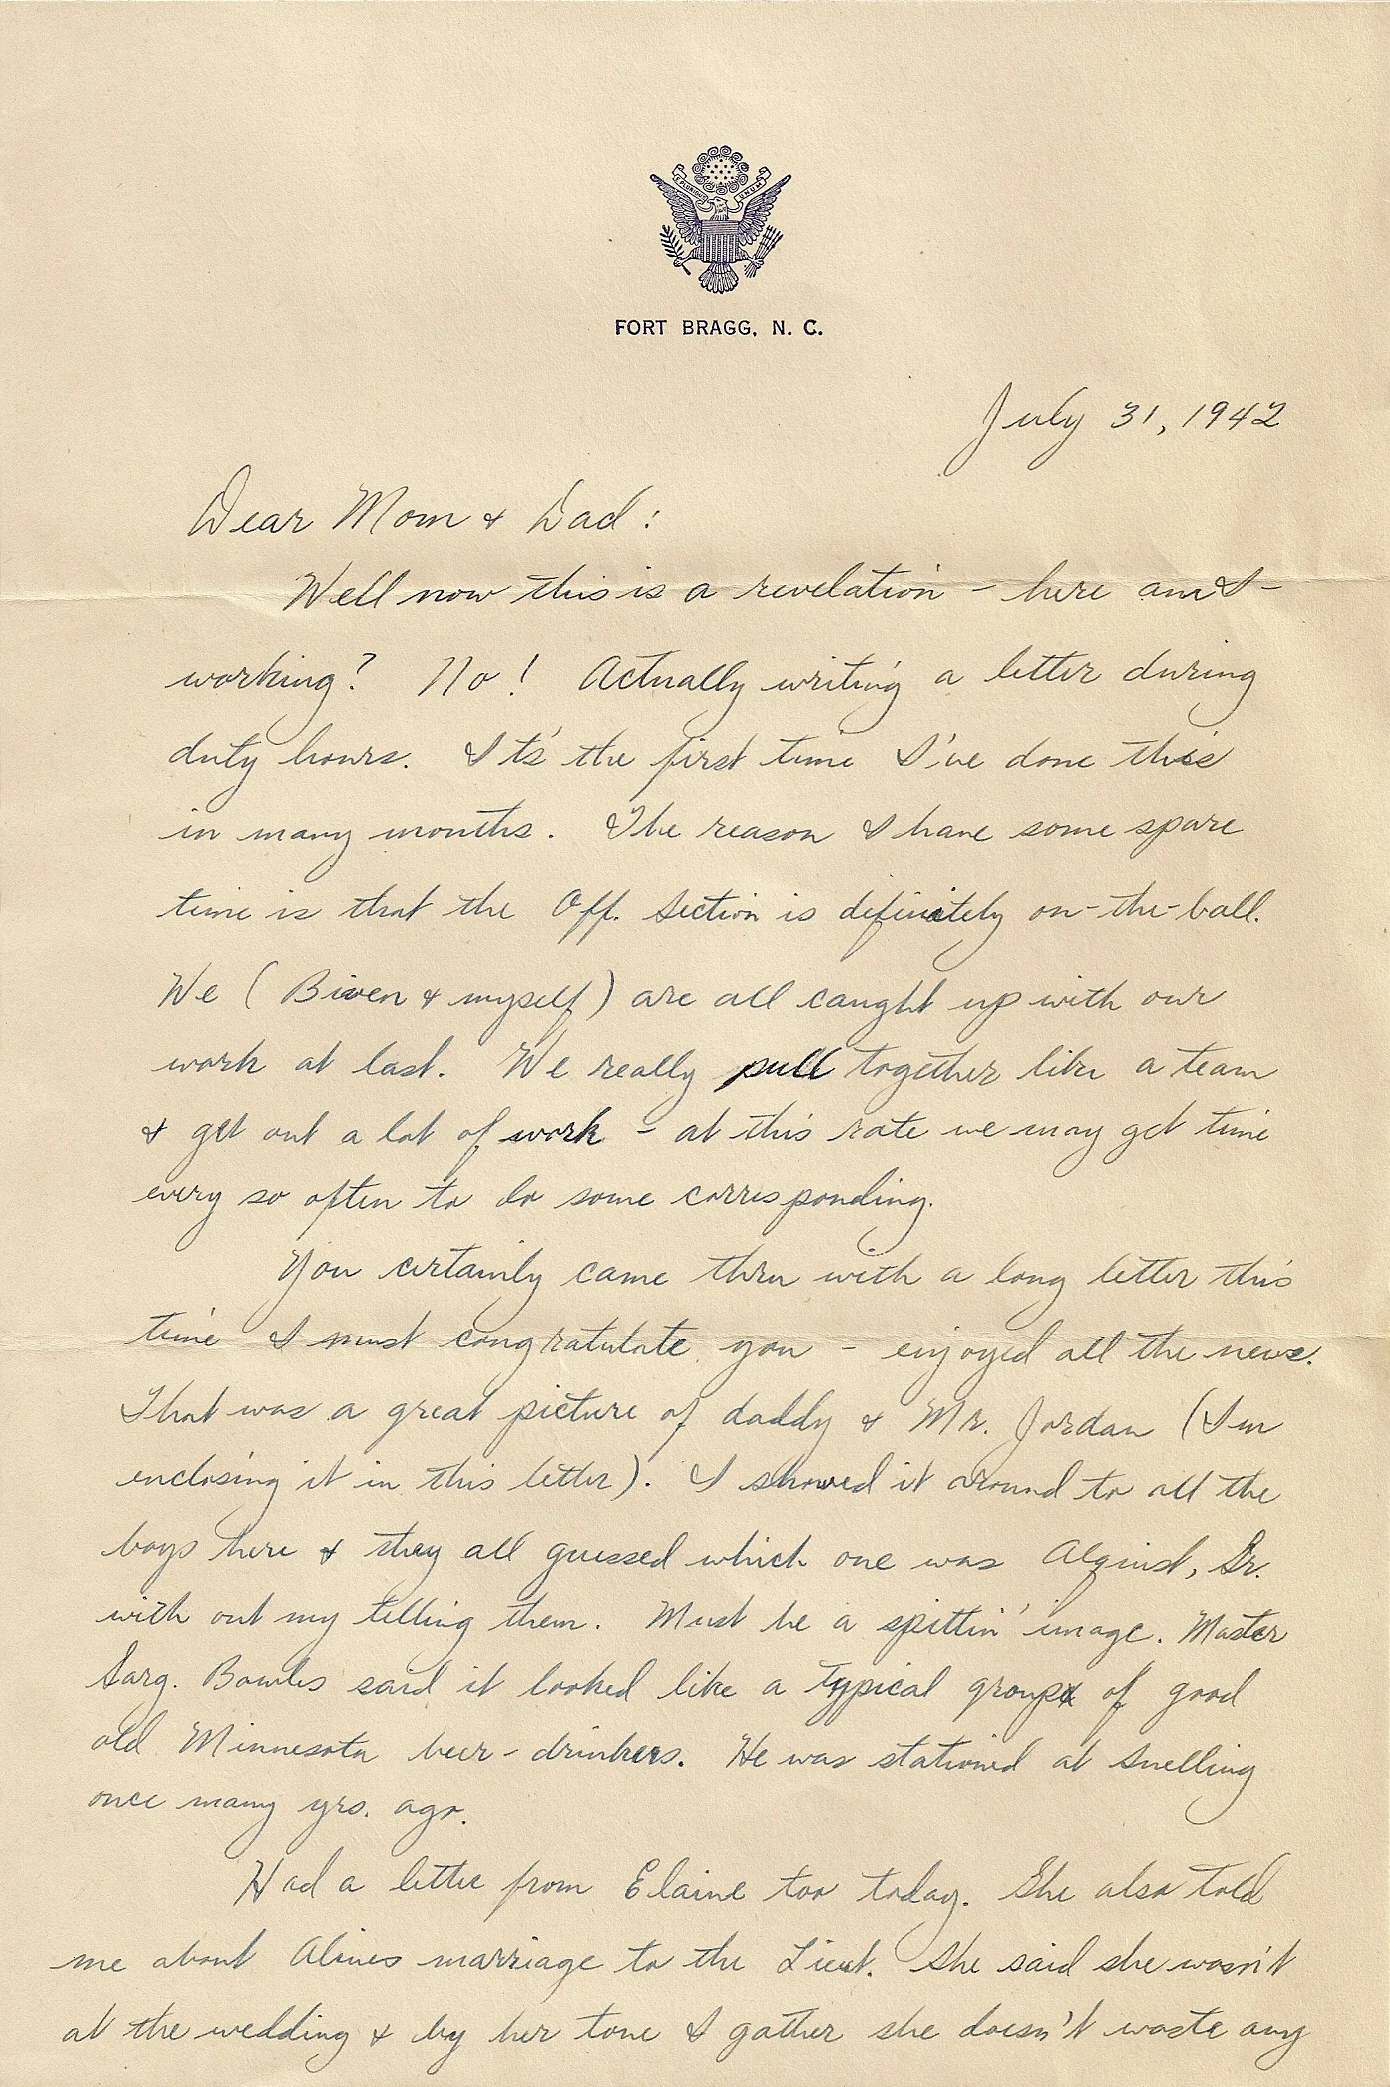 E PLURIBUS UNUM
FORT BRAGG, N. C.
July 31, 1942
Dear Mom & Dad:
Well now this is a revelation - here am I -
working? No! Actually writing a letter during
duty hours. Its' the first time I've done this
in many months. The reason I have some spare
time is that the Off. Section is definitely on-the-ball.
We (Biven & myself) are all caught up with our
work at last. We really pull together like a team
& get out a lot of work - at this rate we may get time
every so often to do some corresponding.
You certainly came thru with a long letter this
time I must congratulate you - enjoyed all the news.
That was a great picture of daddy & Mr. Jordan (Im
enclosing it in this letter). I showed it around to all the
boys here & they all guessed which one was Alquist, Sr.
with out my telling them. Must be a spittin' image. Master
Sarg. Bowles said it looked like a typical group of good
old Minnesota beer-drinkers. He was stationed at Snelling
once many yrs. ago.
Had a letter from Elaine too today. She also told
me about Alines marriage to the Lieut. She said she wasn't
at the wedding & by her tone I gather she doesn't waste any